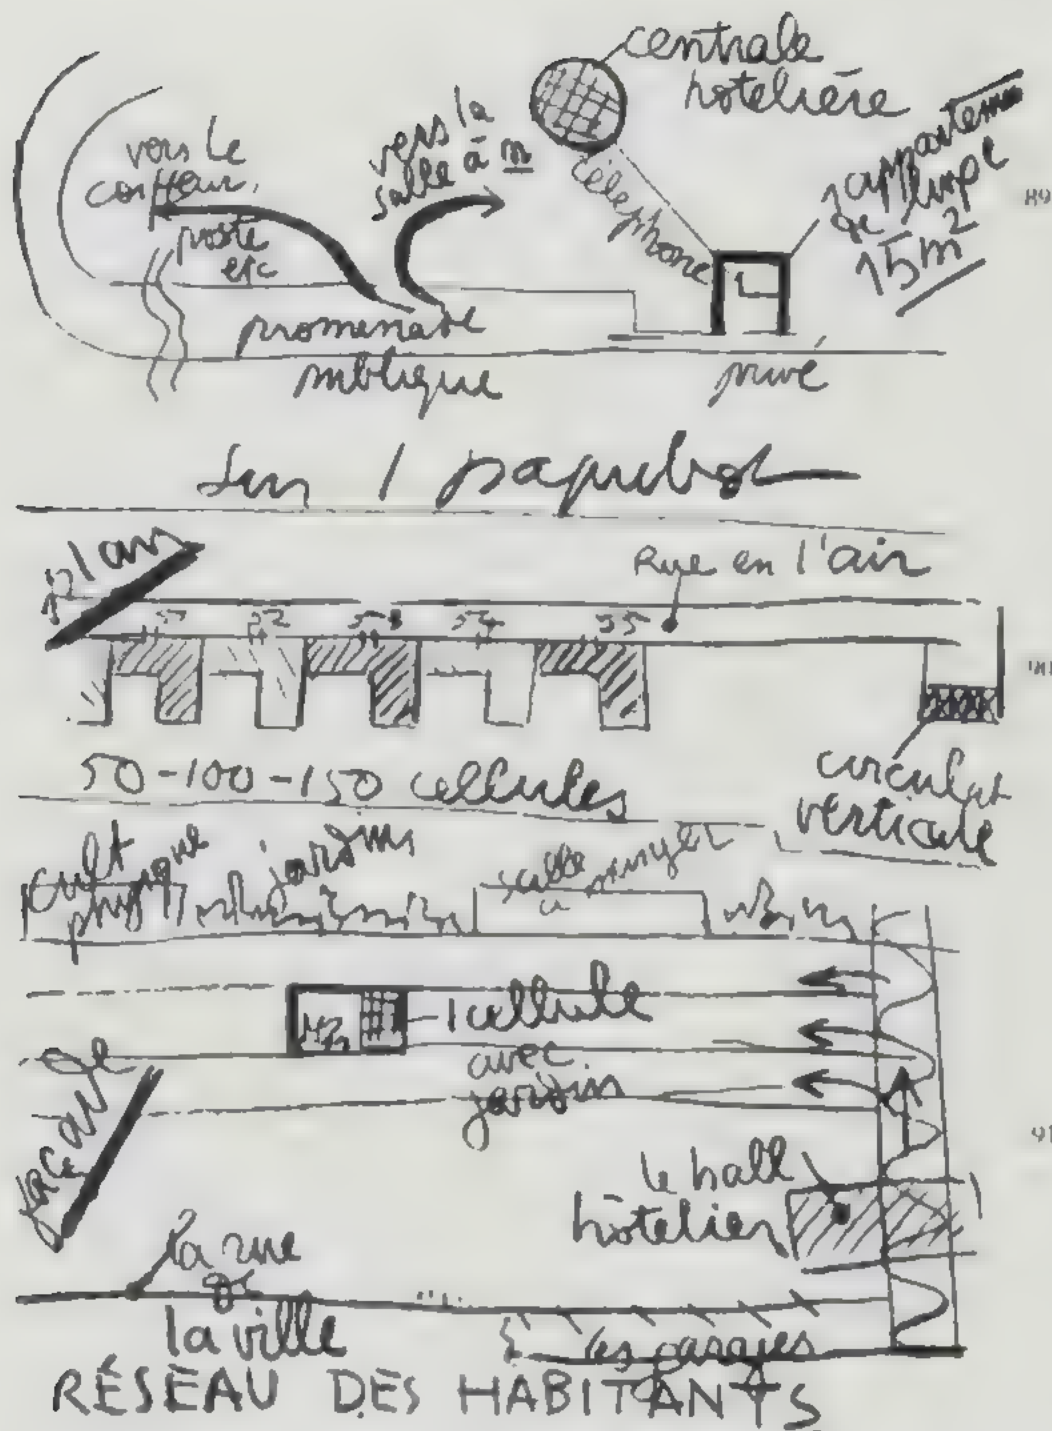 centrale
hotelière
vers le
coiffeur,
poste
etc
vers la
salle à m
téléphone
1 appartem
de luxe
15 m²
89
promenade
publique
privé
Sur 1 paquebot
plan
Rue en l'air
52
53
54
55
90
50-100-150 cellules
circulat
verticale
cult
physique
jardins
salle
à manger
1 cellule
avec
jardin
façade
91
le hall
hôtelier
la rue
de
la ville
les garages
RÉSEAU DES HABITANTS